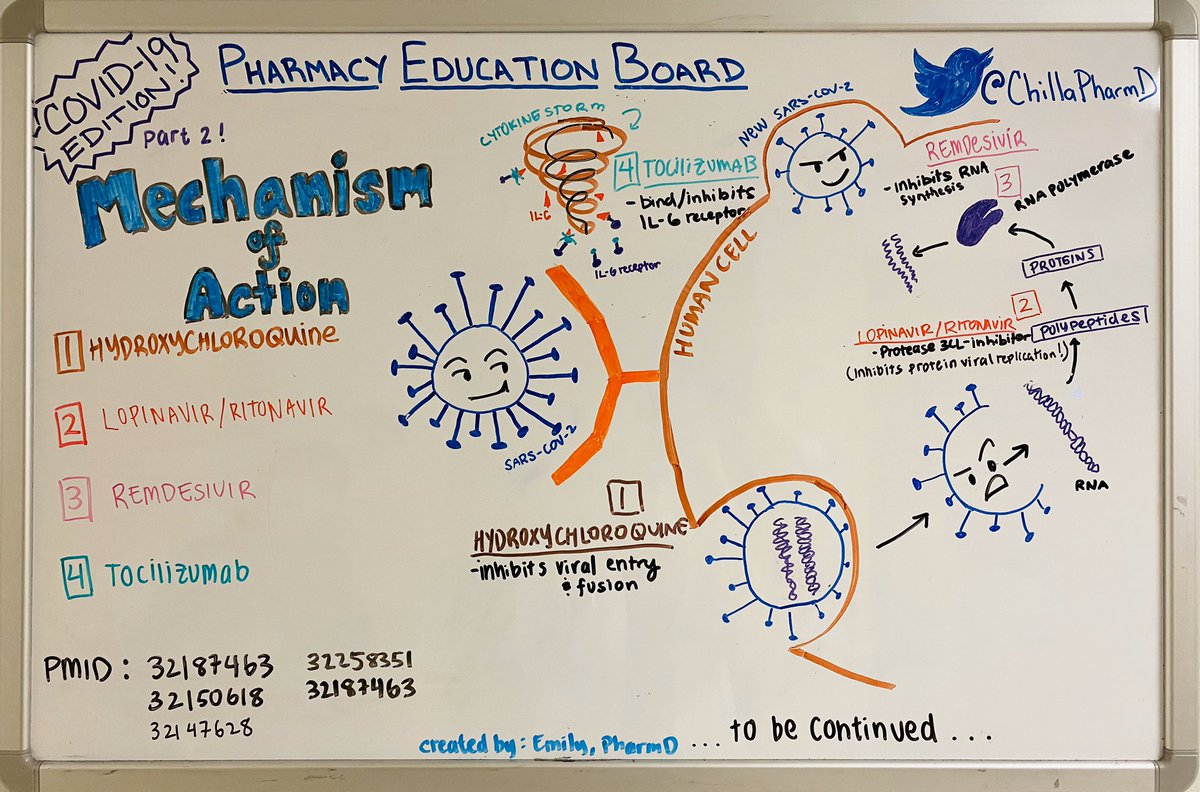 COVID-19
EDITION!
PHARMACY EDUCATION BOARD
@ChillaPharmD
Part 2!
Mechanism
of
Action
1 HYDROXYCHLOROQUINE
2 LOPINAVIR/RITONAVIR
3 REMDESIVIR
4 Tocilizumab
PMID: 32187463 32258351
32150618 32187463
32147628
CYTOKINE STORM
IL-6
IL-6 receptor
4 TOCILIZUMAB
- bind/inhibits
IL-6 receptor
SARS-COV-2
HUMAN CELL
NEW SARS-COV-2
REMDESIVIR
- Inhibits RNA
synthesis
3
RNA POLYMERASE
PROTEINS
2
LOPINAVIR/RITONAVIR
- Protease 3CL-inhibitor
(Inhibits protein viral replication!)
POLYPEPTIDES
RNA
1
HYDROXYCHLOROQUINE
-inhibits viral entry
& fusion
created by: Emily, PharmD ... to be continued ...